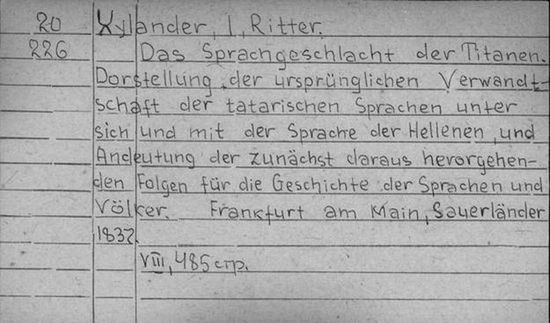 20 Xylander, I, Ritter.
226 Das Sprachgeschlacht der Titanen.
Dorstellung der ursprünglichen Verwandt-
schaft der tatarischen Sprachen unter
sich und mit der Sprache der Hellenen, und
Andeutung der zunächst daraus hervorgehen-
den Folgen für die Geschichte der Sprachen und
Völker. Frankfurt am Main, Sauerländer
1837.
VIII, 485 стр.